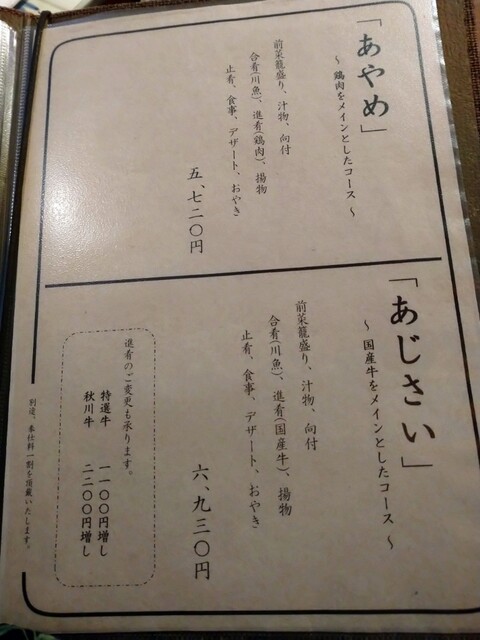 「あやめ」
～ 鶏肉をメインとしたコース ～
前菜籠盛り、汁物、向付
合肴(川魚)、進肴(鶏肉)、揚物
止肴、食事、デザート、おやき
五、七二〇円
「あじさい」
～ 国産牛をメインとしたコース ～
前菜籠盛り、汁物、向付
合肴(川魚)、進肴(国産牛)、揚物
止肴、食事、デザート、おやき
六、九三〇円
進肴のご変更も承ります。
特選牛 一一〇〇円増し
秋川牛 二二〇〇円増し
別途、奉仕料一割を頂戴いたします。